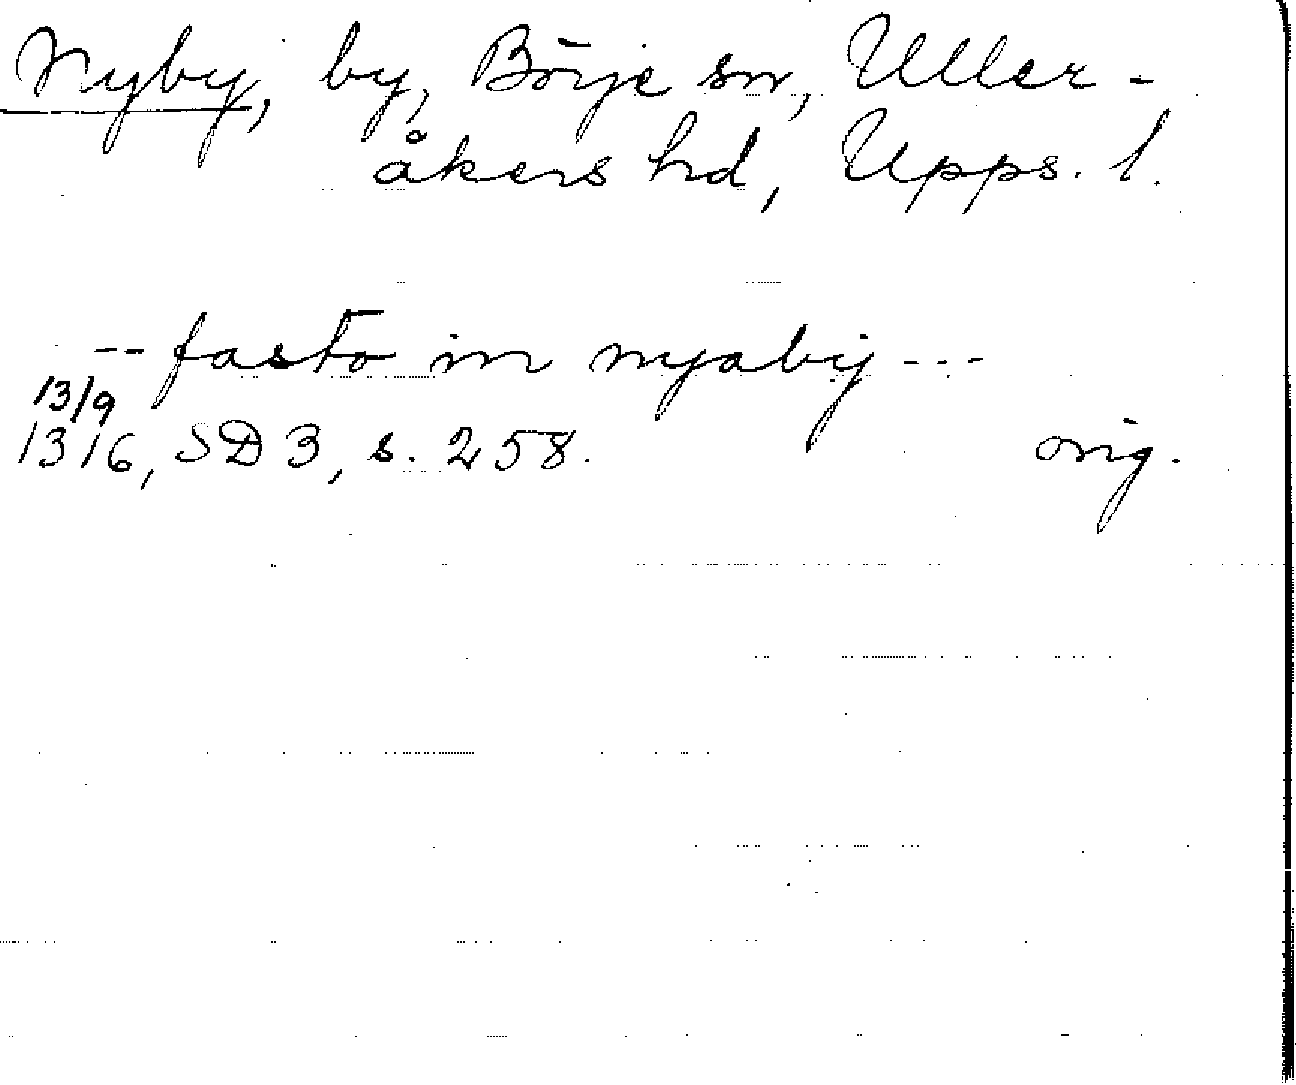 Nyby, by, Börje sn, Uller-
åkers hd, Upps. l.
-- fasto in nyabij ---
13/9
1316, SD 3, s. 258. orig.